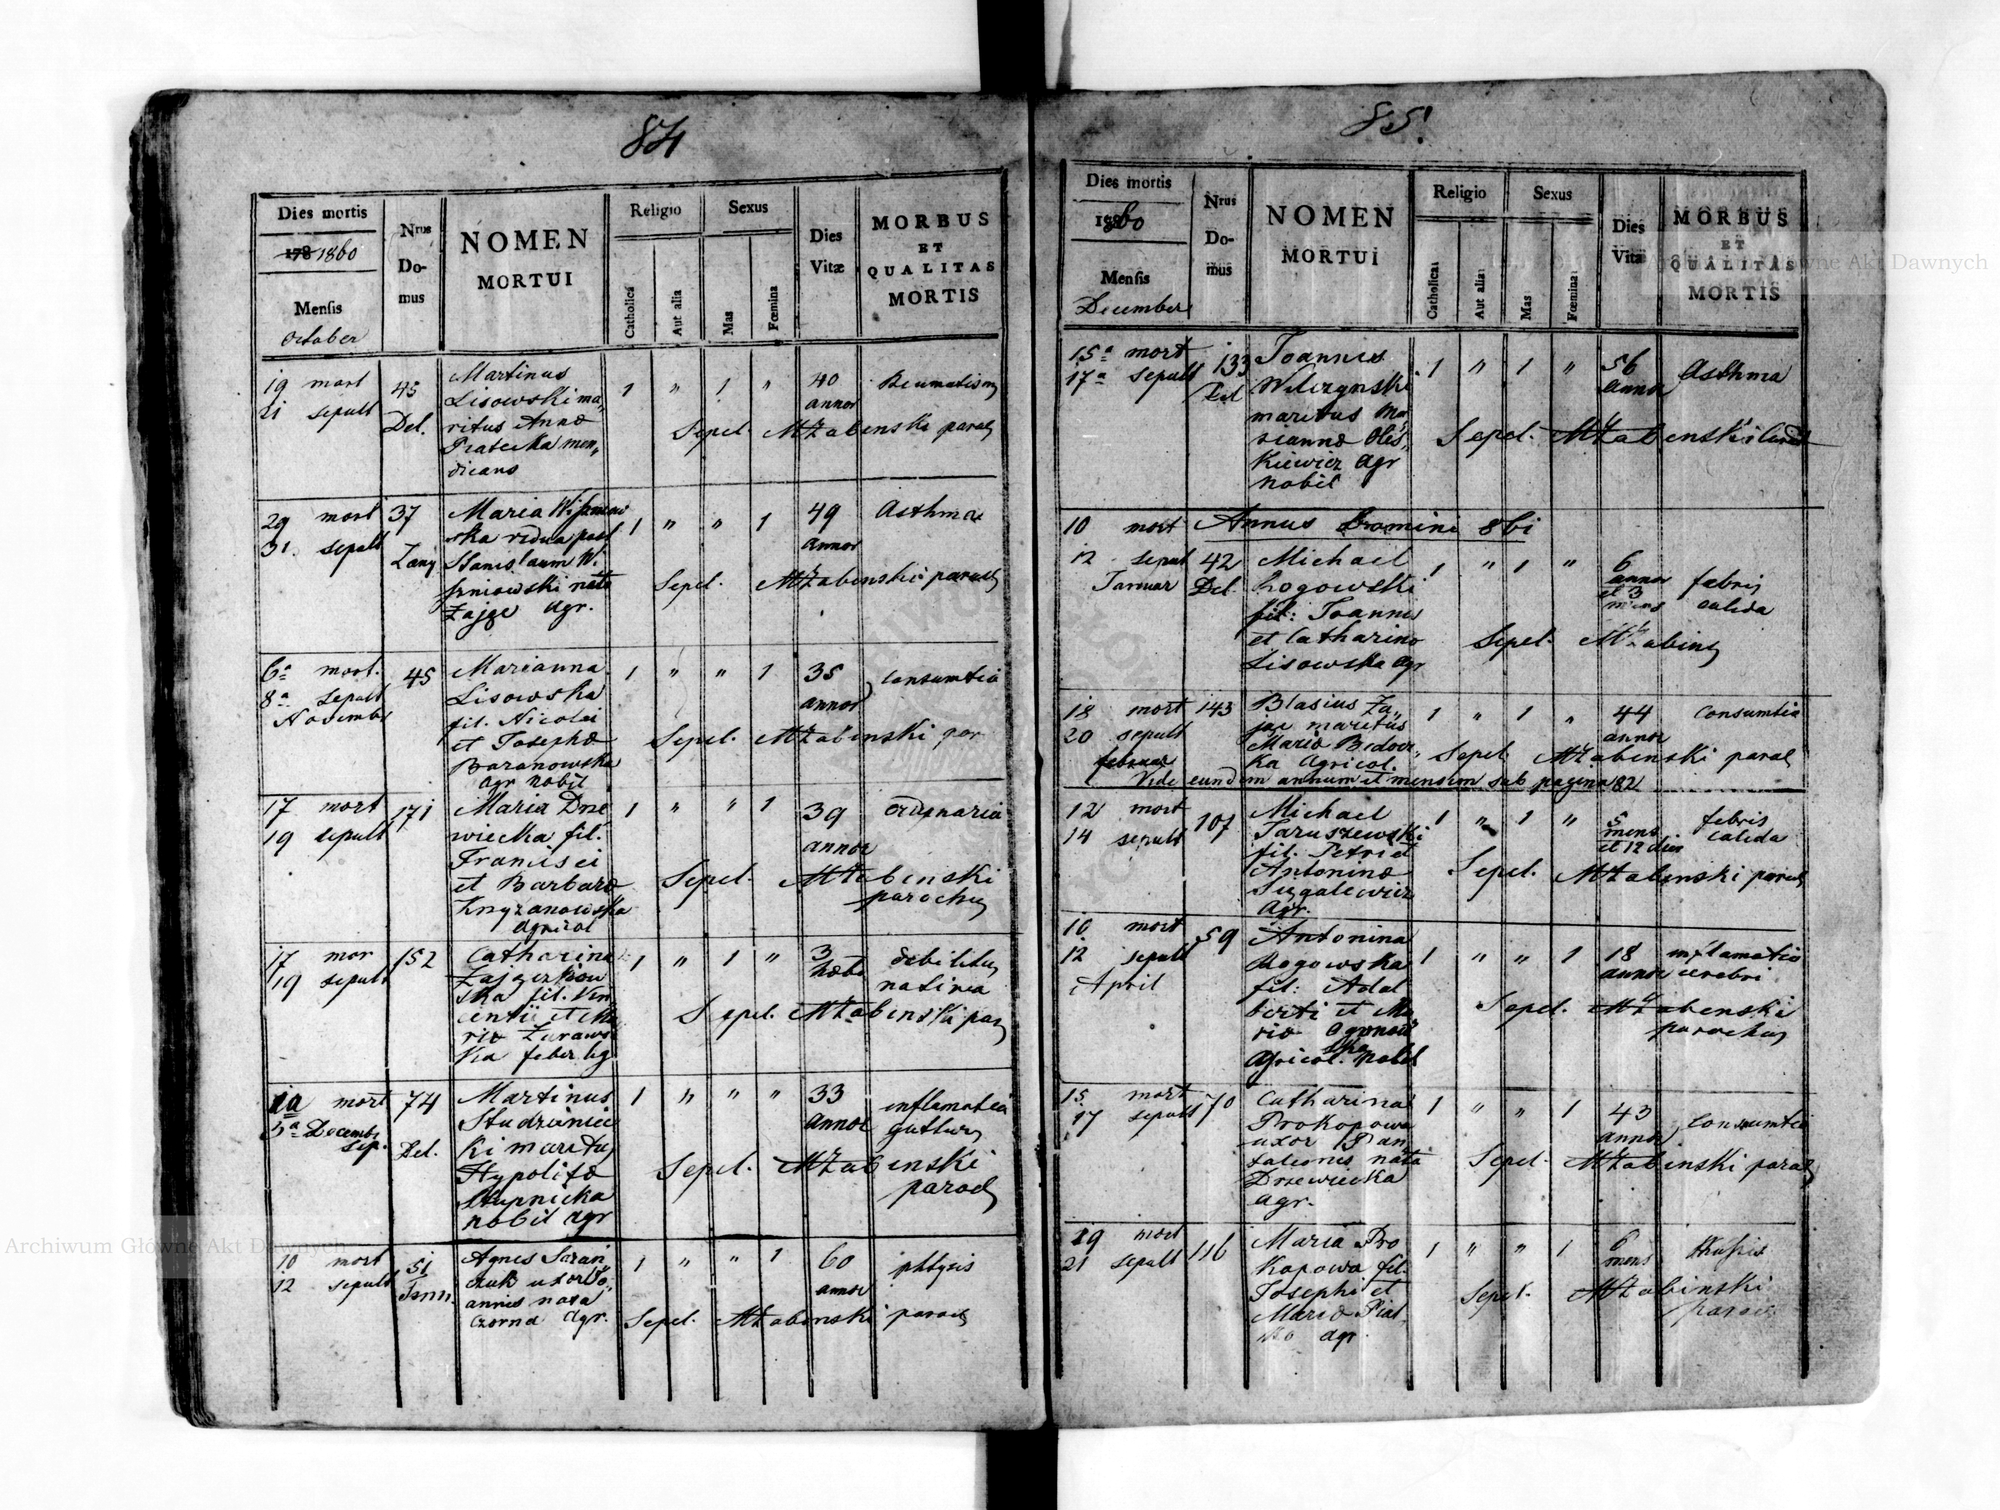 84
Dies mortis
1781860
Mensis
October
Nrus
Do-
mus
NOMEN
MORTUI
Religio
Catholica
Aut alia
Sexus
Mas
Fœmina
Dies
Vitæ
MORBUS
ET
QUALITAS
MORTIS
19 mort
21 sepult
45
Del.
Martinus
Lisowski ma„
ritus Annæ
Piatecka men„
dicans
1 „ 1 „
40
annor
Sepel. MŻabenski paroch
29 mort
31 sepult
37
Maria
ska vidua post
Stanislaum W.
szniowski nata
Zając agr.
1 „ „ 1
49
annor
Asthma
Sepel. MŻabenski paroch
6a mort.
8a sepult
Novembr
45
Marianna
Lisowska
fil. Nicolai
et Josephæ
Baranowska
agr nobil
1 „ „ 1
35
annor
consumtio
Sepel. MŻabenski par
17 mort
19 sepult
171
Maria Drze
wiecka fil.
Francisci
et Barbaræ
Krzyzanowska
agricol
1 „ „ 1
39
annor
Sepel. MŻabenski
parochus
17 mor
19 sepult
152
Catharina
ska fil. Vin„
centii et Ma
riæ Zuraws
ka faber lig
1 „ 1 „
3
debilitas
nativa
Sepel. MŻabenski par
mort
5a Decembr
Sep.
74
Del.
Martinus
Studzinic
ki maritus
Hypolitæ
Stupnicka
nobil agr
1 „ „ „
33
annor
inflamatio
gutturis
Sepel. MŻabenski
paroch
10 mort
12 sepult
51
Jann.
Agnes Saran
czuk uxor Jo„
annis nata
Czorna agr.
1 „ „ 1
60
annor
phtysis
Sepel. MŻabenski paroch
85.
Dies mortis
1860
Mensis
December
Nrus
Do-
mus
NOMEN
MORTUI
Religio
Catholica
Aut alia
Sexus
Mas
Fœmina
Dies
Vitæ
MORBUS
ET
QUALITAS
MORTIS
15a mort
17a sepult
133
Del
Joannes
Wilczynski
maritus Ma
riannæ Oles„
kiewicz agr
nobil
1 „ 1 „
56
annor
Asthma
Sepel. MŻabenski
Annus Domini 861
10 mort
12 sepult
Januar
42
Del.
Michael
Rogowski
fil: Joannis
et Catharinæ
Lisowska agr
1 „ 1 „
6
annor
et 3
mens
febris
calida
Sepel. MŻabens
18 mort
20 sepult
februar
143
Blasius Za„
jac maritus
Mariæ Bedow„
ka agricol.
1 „ 1 „
44
annor
consumtio
Sepel MŻabenski paroch
Vide eundem annum et mensem sub pagina 82
12 mort
14 sepult
107
Michael
Jaruszewski
fil. Petri et
Antoninæ
Szgalewicz
agr.
1 „ 1 „
5
mens
et 12 dies
febris
calida
Sepel. MŻabenski paroch
10 mort
12 sepult
April
59
Antonina
Rogowska
fil: Adal
berti et Ma
riæ
agricol. nobil
1 „ „ 1
18
annor
inflamatio
cerebri
Sepel. MŻabenski
parochus
15 mort
17 sepult
170
Catharina
Prokopowa
uxor Pan
taleonis nata
Drzewiecka
agr.
1 „ „ 1
43
annor
consumtio
Sepel. MŻabenski paroch
19 mort
21 sepult
116
Maria Pro
kopowa fil.
Josephi et
Mariæ Piat
agr.
1 „ „ 1
6
mens
thussis
Sepel. MŻabinski
paroch
Archiwum Główne Akt Dawnych